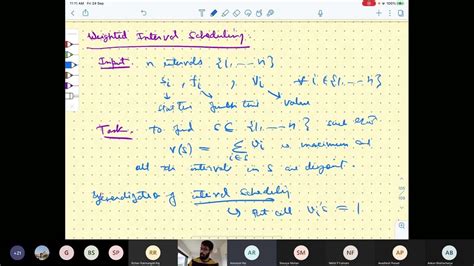 11:11 AM Fri 24 Sep
Weighted Interval Scheduling.
Input: n intervals {1, --- n}
si, fi, vi ∀ i ∈ {1, --- n}
start time finish time value
Task: to find S ⊆ {1, --- n} such that
v(S) = Σ i∈S vi is maximum and
all the interval in S are disjoint.
Generalization of interval Scheduling
↳ Put all vi's = 1
+21 G S P RR AR S NF M AP AB